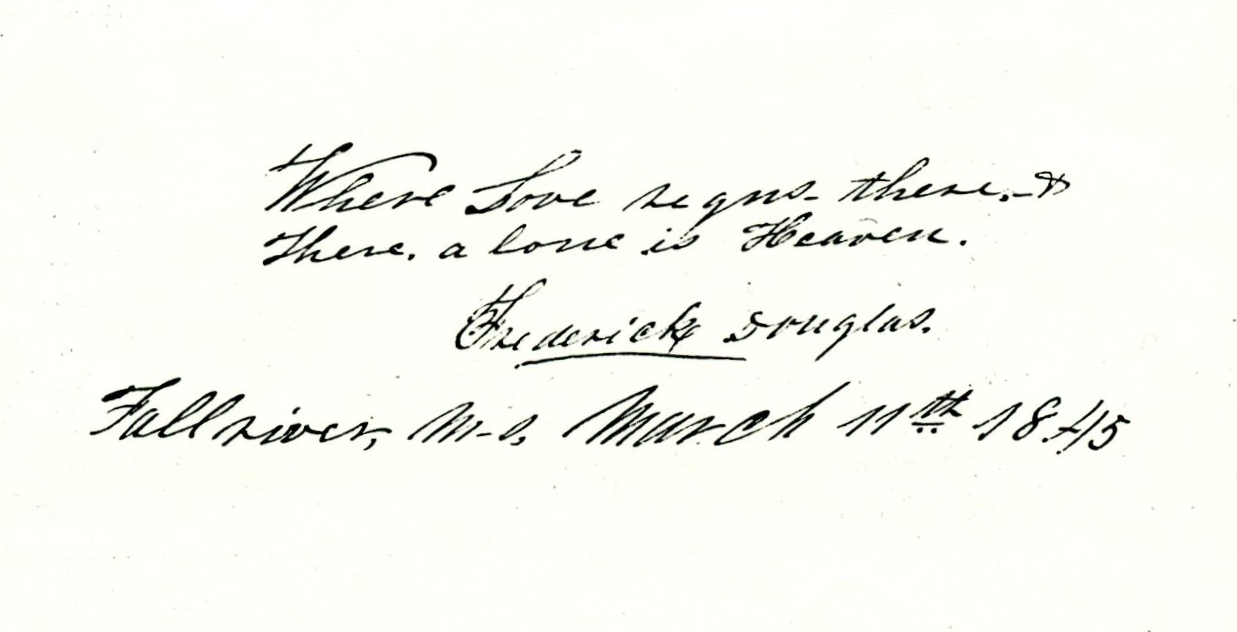 Where Love regns - there. &
There. a lone is Heaven.
Frederick Douglas.
Fallriver, M-s, March 11th 1845